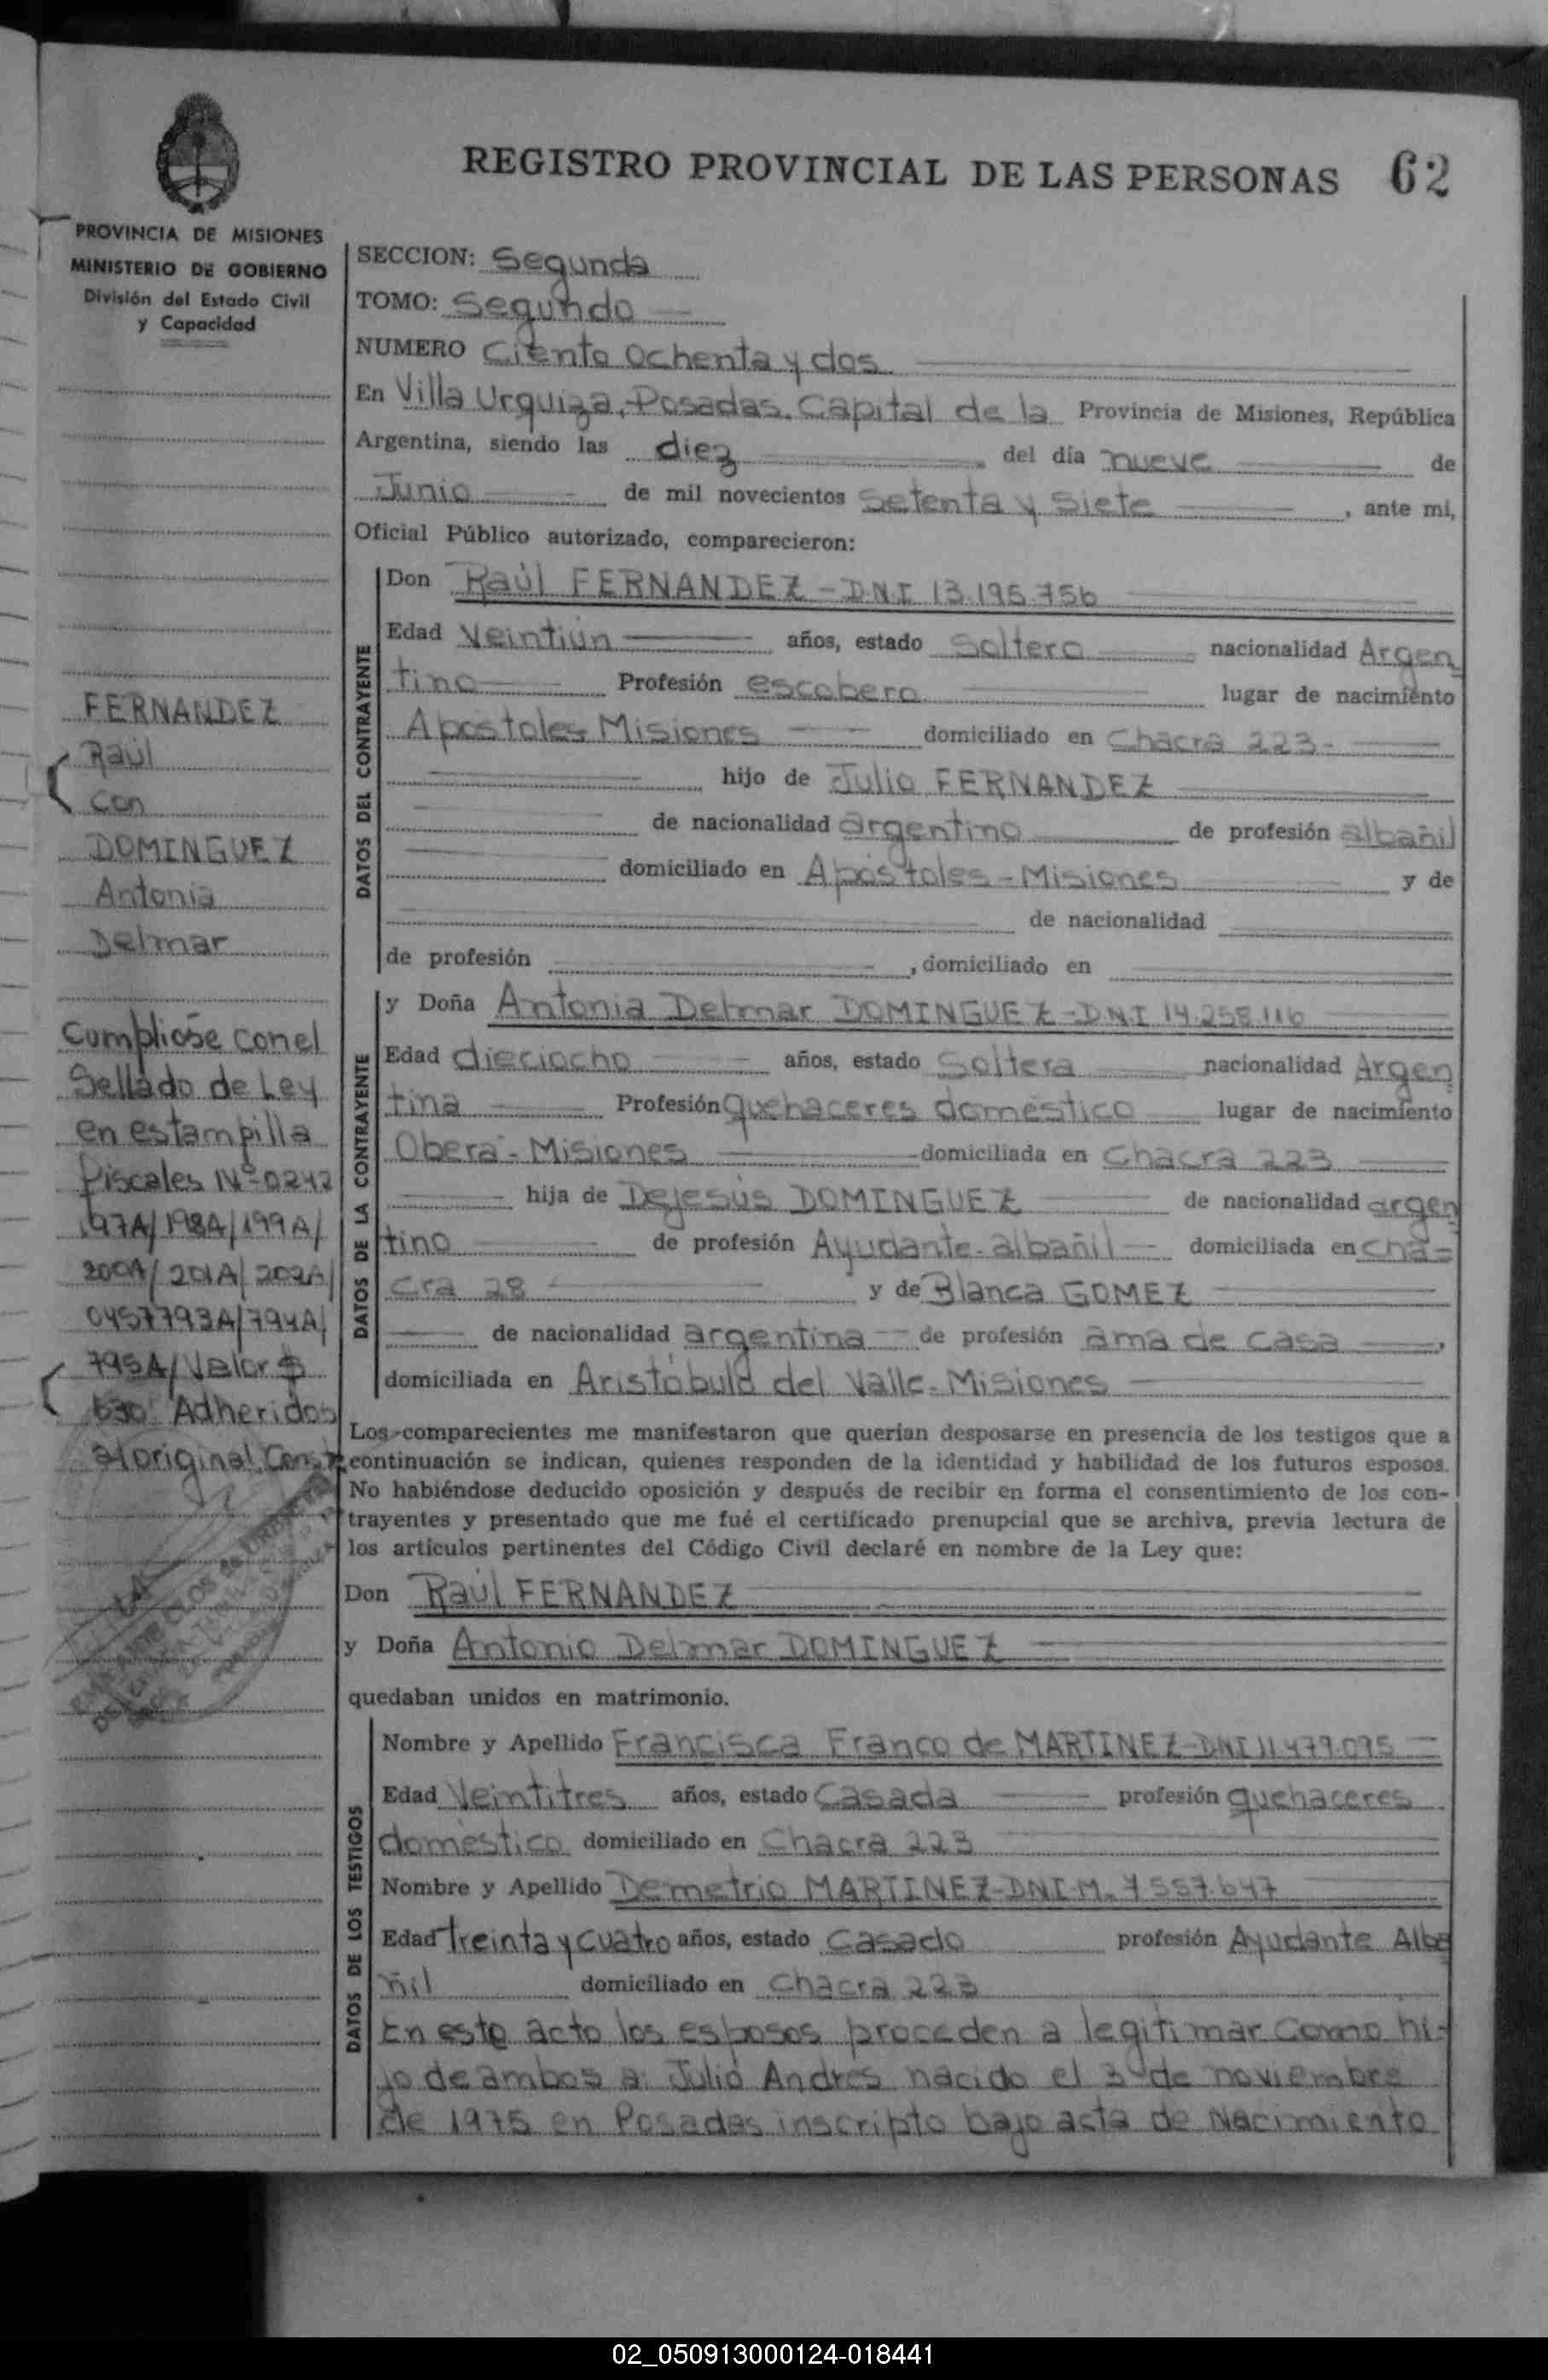 REGISTRO PROVINCIAL DE LAS PERSONAS 62
PROVINCIA DE MISIONES
MINISTERIO DE GOBIERNO
División del Estado Civil
y Capacidad
FERNANDEZ
Raúl
con
DOMINGUEZ
Antonia
Delmar
Cumpliose con el
Sellado de Ley
en estampilla
fiscales Nº 0242
197A/198A/199A/
200A/201A/202A/
0457793A/794A/
795A/Valor $
630 Adheridos
al original. Conste
SECCION: Segunda
TOMO: Segundo
NUMERO Ciento Ochenta y dos
En Villa Urquiza, Posadas, Capital de la Provincia de Misiones, República
Argentina, siendo las diez del día nueve de
Junio de mil novecientos Setenta y Siete, ante mi,
Oficial Público autorizado, comparecieron:
DATOS DEL CONTRAYENTE
Don Raúl FERNANDEZ - D.N.I 13.195.756
Edad Veintiún años, estado Soltero nacionalidad Argen
tino Profesión escobero lugar de nacimiento
Apostoles Misiones domiciliado en Chacra 223-
hijo de Julio FERNANDEZ
de nacionalidad argentino de profesión albañil
domiciliado en Apóstoles - Misiones y de
de nacionalidad
de profesión , domiciliado en
DATOS DE LA CONTRAYENTE
y Doña Antonia Delmar DOMINGUEZ - D.N.I 14.258.116
Edad dieciocho años, estado Soltera nacionalidad Argen
tina Profesión quehaceres doméstico lugar de nacimiento
Oberá - Misiones domiciliada en Chacra 223
hija de Dejesús DOMINGUEZ de nacionalidad argen
tino de profesión Ayudante - albañil domiciliada en Cha=
cra 28 y de Blanca GOMEZ
de nacionalidad argentina de profesión ama de casa,
domiciliada en Aristóbulo del Valle - Misiones
Los comparecientes me manifestaron que querían desposarse en presencia de los testigos que a
continuación se indican, quienes responden de la identidad y habilidad de los futuros esposos.
No habiéndose deducido oposición y después de recibir en forma el consentimiento de los con-
trayentes y presentado que me fué el certificado prenupcial que se archiva, previa lectura de
los artículos pertinentes del Código Civil declaré en nombre de la Ley que:
Don Raúl FERNANDEZ
y Doña Antonia Delmar DOMINGUEZ
quedaban unidos en matrimonio.
DATOS DE LOS TESTIGOS
Nombre y Apellido Francisca Franco de MARTINEZ - DNI 11 479.095
Edad Veintitres años, estado Casada profesión quehaceres
doméstico domiciliado en Chacra 223
Nombre y Apellido Demetrio MARTINEZ - DNI M. 7 557.647
Edad Treinta y Cuatro años, estado Casado profesión Ayudante Alba
ñil domiciliado en Chacra 223
En este acto los esposos proceden a legitimar como hi-
jo de ambos a: Julio Andres nacido el 3 de noviembre
de 1975 en Posadas inscripto bajo acta de Nacimiento
02_050913000124-018441